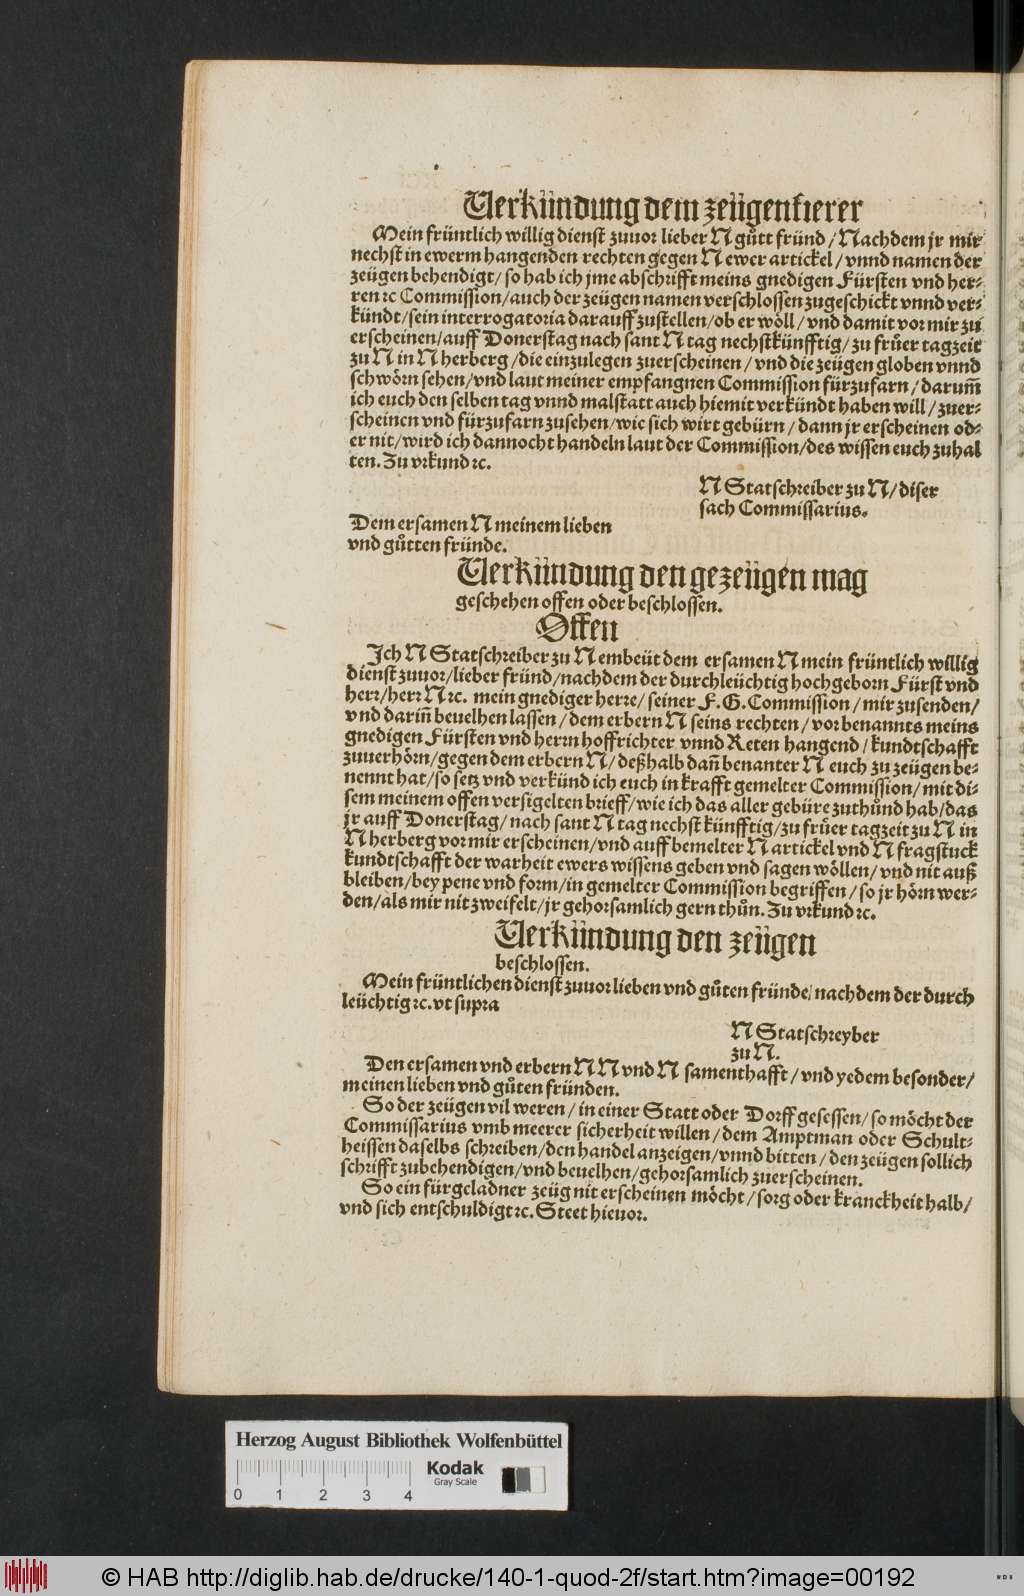 Verkündung dem zeügenfierer
Mein früntlich willig dienst zuuor lieber N gůtt fründ / Nachdem jr mir
nechst in ewerm hangenden rechten gegen N ewer artickel / vnnd namen der
zeügen behendigt / so hab ich jme abschrifft meins gnedigen Fürsten vnd her⸗
ren ꝛc Commission / auch der zeügen namen verschlossen zugeschickt vnnd ver⸗
kündt / sein interrogatoria darauff zustellen / ob er wöll / vnd damit vor mir zů
erscheinen / auff Donerstag nach sant N tag nechstkünfftig / zu früer tagzeit
zu N in N herberg / die einzulegen zuerscheinen / vnd die zeügen globen vnnd
schwörn sehen / vnd laut meiner empfangnen Commission fürzufarn / darum̃
ich euch den selben tag vnnd malstatt auch hiemit verkündt haben will / zuer⸗
scheinen vnd fürzufarn zusehen / wie sich wirt gebürn / dann jr erscheinen od⸗
er nit / wird ich dannocht handeln laut der Commission / des wissen euch zuhal
ten. Zu vrkund ꝛc.
N Statschreiber zu N / diser
sach Commissarius.
Dem ersamen N meinem lieben
vnd gůtten fründe.
Verkündung den gezeügen mag
geschehen offen oder beschlossen.
Offen
Ich N Statschreiber zu N embeüt dem ersamen N mein früntlich willig
dienst zuuor / lieber fründ / nachdem der durchleüchtig hochgeborn Fürst vnd
herr / herr N ꝛc. mein gnediger herre / seiner F. G. Commission / mir zusenden /
vnd darin̄ beuelhen lassen / dem erbern N seins rechten / vor benannts meins
gnedigen Fürsten vnd herrn hoffrichter vnnd Reten hangend / kundtschafft
zuuerhörn / gegen dem erbern N / deßhalb dan̄ benanter N euch zu zeügen be⸗
nennt hat / so setz vnd verkünd ich euch in krafft gemelter Commission / mit di⸗
sem meinem offen versigelten brieff / wie ich das aller gebüre zuthůnd hab / das
jr auff Donerstag / nach sant N tag nechst künfftig / zu früer tagzeit zu N in
N herberg vor mir erscheinen / vnd auff bemelter N artickel vnd N fragstuck
kundtschafft der warheit ewers wissens geben vnd sagen wöllen / vnd nit auß
bleiben / bey pene vnd form / in gemelter Commission begriffen / so jr hörn wer⸗
den / als mir nit zweifelt / jr gehorsamlich gern thůn. Zu vrkund ꝛc.
Verkündung den zeügen
beschlossen.
Mein früntlichen dienst zuuor lieben vnd gůten fründe / nachdem der durch
leüchtig ꝛc. vt supra
N Statschreyber
zu N.
Den ersamen vnd erbern N N vnd N samenthafft / vnd yedem besonder /
meinen lieben vnd gůten fründen.
So der zeügen vil weren / in einer Statt oder Dorff gesessen / so möcht der
Commissarius vmb meerer sicherheit willen / dem Amptman oder Schult⸗
heissen daselbs schreiben / den handel anzeigen / vnnd bitten / den zeügen sollich
schrifft zubehendigen / vnd beuelhen / gehorsamlich zuerscheinen.
So ein fürgeladner zeüg nit erscheinen möcht / sorg oder kranckheit halb /
vnd sich entschuldigt ꝛc. Steet hieuor.
Herzog August Bibliothek Wolfenbüttel
Kodak
Gray Scale
0 1 2 3 4
© HAB http://diglib.hab.de/drucke/140-1-quod-2f/start.htm?image=00192